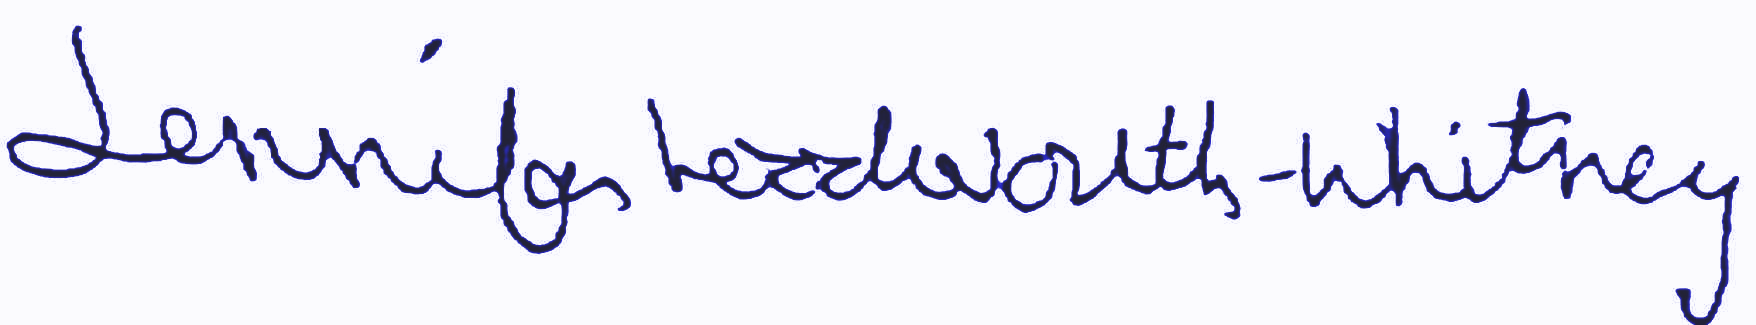 Jennifer Leadworth-Whitney